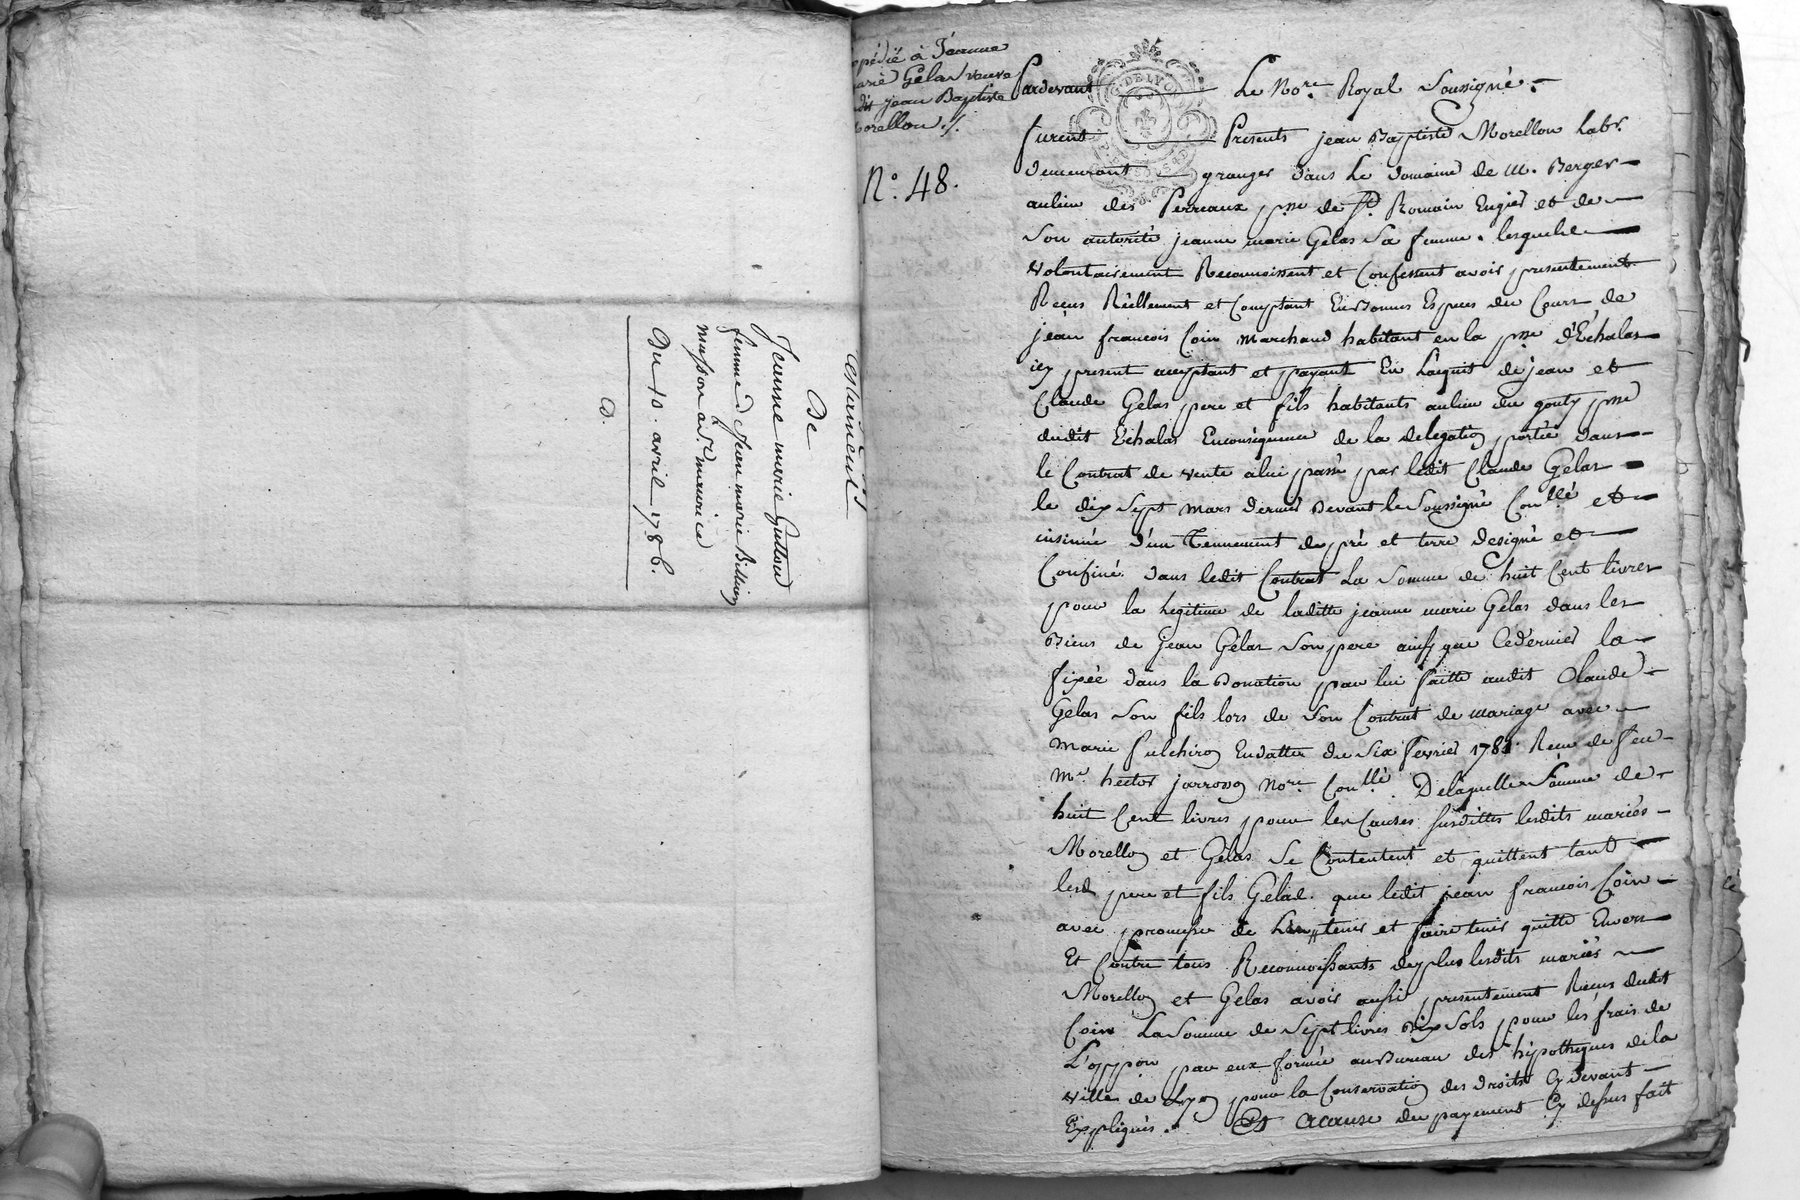 Testament
De
Jeanne marie Guttond
femme de Jean marie Billion
masson a St. maurice
Du 10. avril 1786.
D.
expédié à Jeanne
marie Gelas veuve
dudit jean Baptiste
Morellon ./.
N.° 48.
Pardevant Le No.re Royal Soussigné.
furent Presents jean Baptiste Morellon Labr.
demeurant granger dans Le domaine de M. Berger
aulieu des Perreaux psse de St. Romain Engier et de
son autorité jeanne marie Gelas sa femme. lesquels
volontairement Reconnoissent et Confessent avoir presentement
Reçus Réellement et Comptant En bonnes Espèces du Cours de
jean francois Coin marchand habitant en la psse d'Echalas
icy present acceptant et payant En L'aquit de jean et
Claude Gelas pere et fils habitants aulieu du gouty psse
dudit Echalas Enconséquence de la delegation portée dans
le Contrat de vente alui passé par ledit Claude Gelas
le dix Sept mars dernier devant le Soussigné Con.llé et
insinué d'un Tennement de pré et terre designé et
Confiné dans ledit Contrat La Somme de huit Cent livres
pour la legitime de laditte jeanne marie Gelas dans les
Biens de jean Gelas son pere ainsy que Cedernier la
fixée dans la Donation par lui faitte audit Claude
Gelas son fils lors de son Contrat de mariage avec
Marie fulchiron Endatte du Six fevrier 178 Recu de feu
Me. hector jarrosson No.re Con.llé. Delaquelle Somme de
huit Cent livres pour les Causes susdittes lesdits mariés
Morellon et Gelas se Contentent et quittent tant
lesd. pere et fils Gelas. que ledit jean francois Coin
avec promesse de Les tenir et faire tenir quitte Envers
Et Contre tous Reconnoissants deplus lesdits mariés
Morellon et Gelas avoir aussi presentement Recus dudit
Coin La Somme de Sept livres dix sols pour les frais de
L'oppon par eux formée au Bureau des hipotheques de la
ville de Lyon pour la Conservation des droits Cydevant
Expliqués. Et acause du payement Cy dessus fait